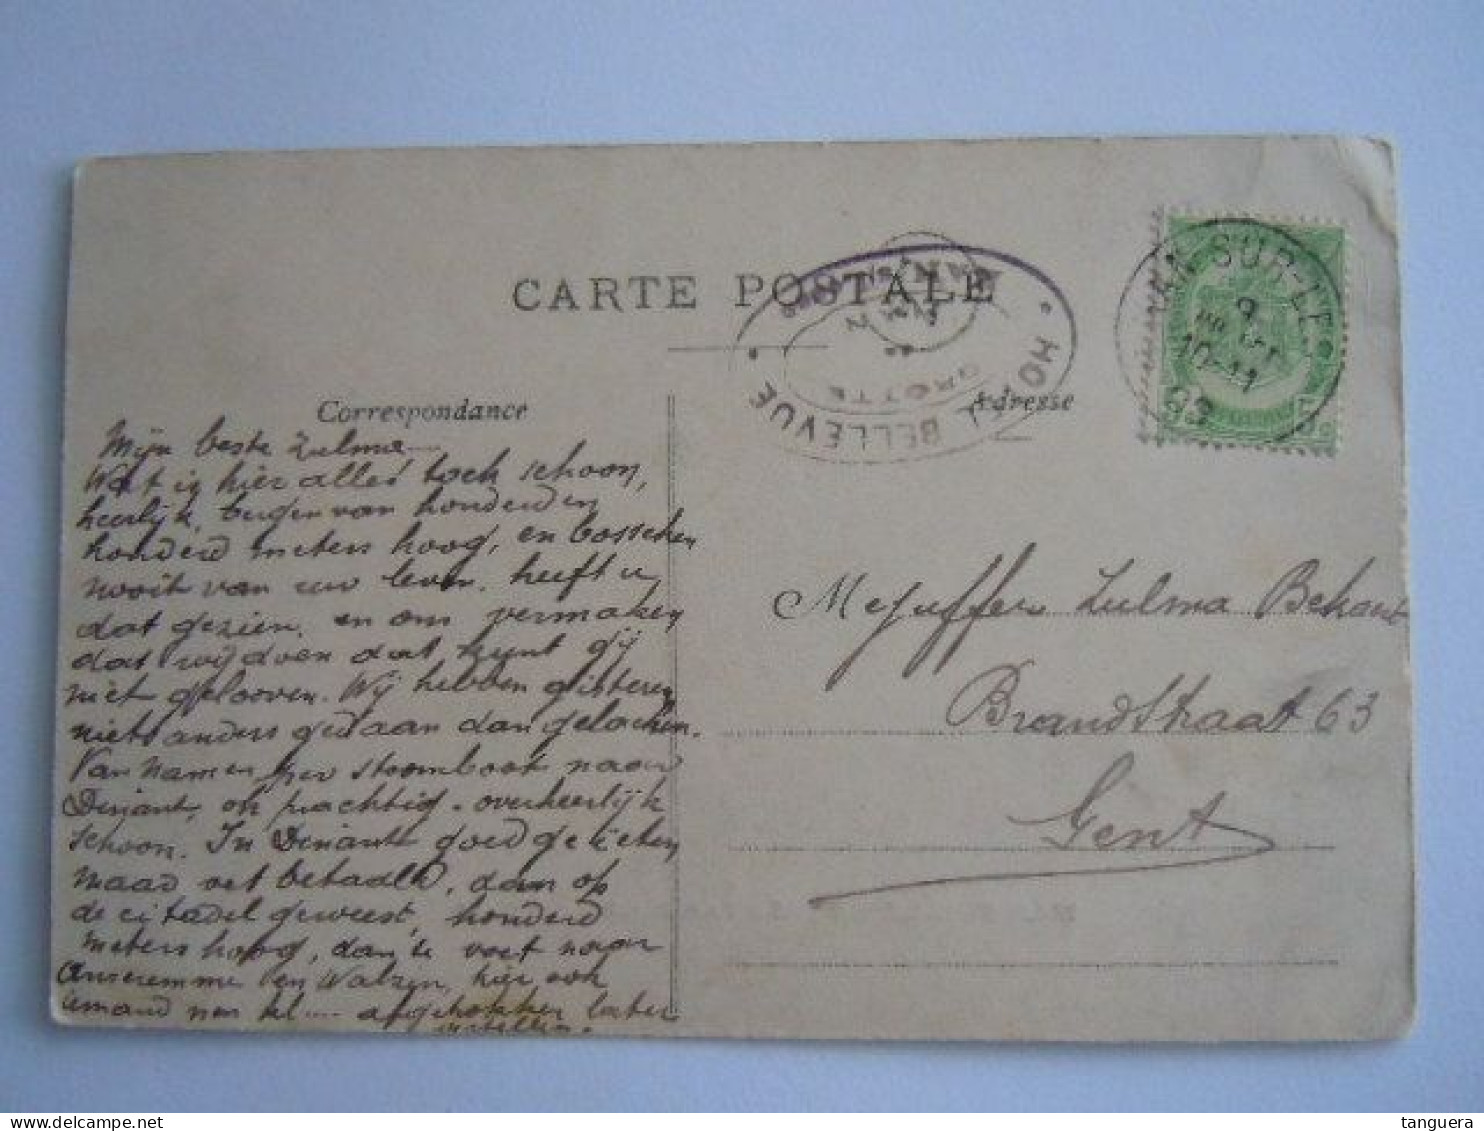 CARTE POSTALE
HOTEL BELLEVUE
GROTTE
HAN-SUR-LE
9
10-11
Correspondance
Adresse
Mijn beste Zulma
Wat is hier alles toch schoon,
heerlijk, bergen van honderden
honderd meters hoog, en bosschen
nooit van uw leven heeft u
dat gezien, en ons vermaken
dat wij doen dat kunt gij
niet gelooven. Wij hebben gisteren
niets anders gedaan dan gelachen.
Van Namen per stoomboot naar
Dinant, oh prachtig - overheerlijk
schoon. In Dinant goed gegeten
maar vet betaald, dan op
de citadel geweest, honderd
meters hoog, dan te voet naar
Anseremme en Walzin, hier ook
iemand een tel .... afgetrokken later
vertellen.
Mejuffer Zulma Bekaert
Brandstraat 63
Gent
tanguera